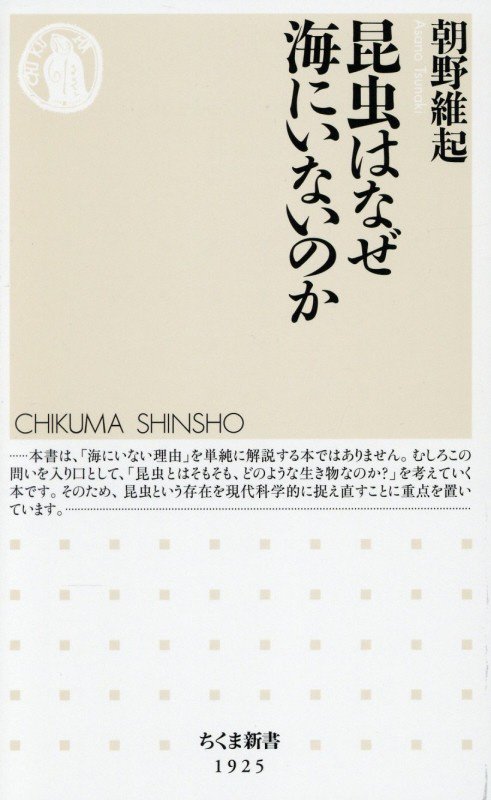 朝野維起
Asano Tsunaki
昆虫はなぜ
海にいないのか
CHIKUMA
CHIKUMA SHINSHO
……本書は、「海にいない理由」を単純に解説する本ではありません。むしろこの
問いを入り口として、「昆虫とはそもそも、どのような生き物なのか?」を考えていく
本です。そのため、昆虫という存在を現代科学的に捉え直すことに重点を置い
ています。……
ちくま新書
1925